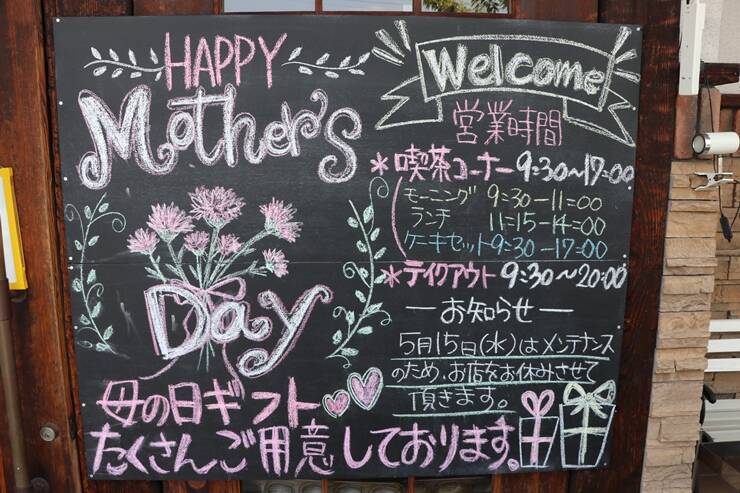 HAPPY
Mother's
Day
母の日ギフト
たくさんご用意しております。
Welcome
営業時間
*喫茶コーナー 9:30~17:00
モーニング 9:30-11:00
ランチ 11:15-14:00
ケーキセット 9:30-17:00
*テイクアウト 9:30~20:00
―お知らせ―
5月15日(水)はメンテナンス
のため、お店をお休みさせて
頂きます。